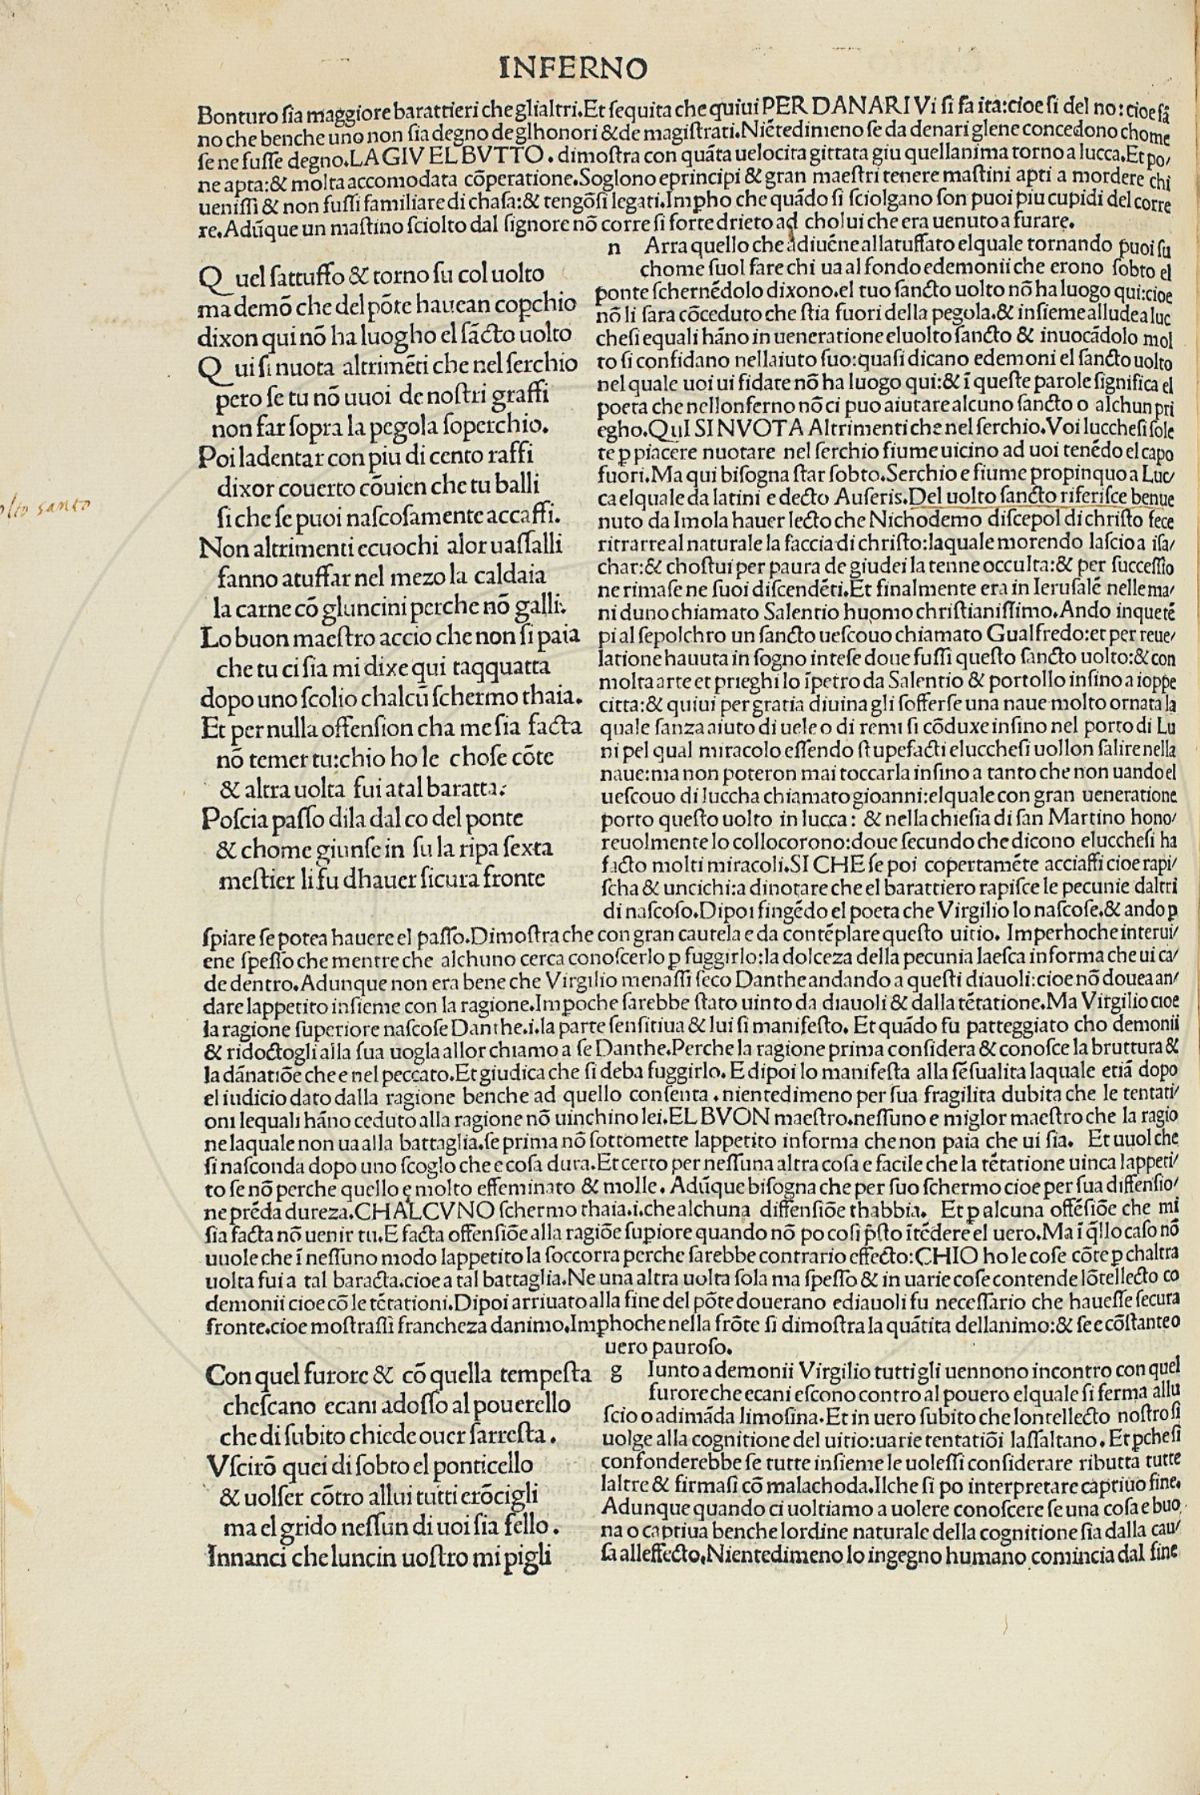 INFERNO
Bonturo sia maggiore barattieri che glialtri.Et sequita che quiui PER DANARI Vi si fa ita:cioe si del no:cioe fã
no che benche uno non sia degno de glhonori & de magistrati.Niẽtedimeno se da denari glene concedono chome
se ne fusse degno.LA GIV EL BVTTO. dimostra con quãta uelocita gittata giu quellanima torno a lucca.Et po/
ne apta:& molta accomodata cõperatione.Soglono eprincipi & gran maestri tenere mastini apti a mordere chi
uenissi & non fussi familiare di chasa:& tengõsi legati.Impho che quãdo si sciolgano son puoi piu cupidi del corre
re.Adũque un mastino sciolto dal signore nõ corre si forte drieto ad cholui che era uenuto a furare.
Quel sattuffo & torno su col uolto
ma demõ che del põte hauean copchio
dixon qui nõ ha luogho el sãcto uolto
Qui si nuota altrimẽti che nel serchio
pero se tu nõ uuoi de nostri graffi
non far sopra la pegola soperchio.
Poi ladentar con piu di cento raffi
dixor couerto cõuien che tu balli
si che se puoi nascosamente accaffi.
Non altrimenti ecuochi alor uassalli
fanno atuffar nel mezo la caldaia
la carne cõ gluncini perche nõ galli.
Lo buon maestro accio che non si paia
che tu ci sia mi dixe qui taqquatta
dopo uno scolio chalcũ schermo thaia.
Et per nulla offension cha me sia facta
nõ temer tu:chio ho le chose cõte
& altra uolta fui atal baratta.
Poscia passo dila dal co del ponte
& chome giunse in su la ripa sexta
mestier li fu dhauer sicura fronte
n Arra quello che adiuẽne allatuffato elquale tornando puoi su
chome suol fare chi ua al fondo edemonii che erono sobto el
ponte schernẽdolo dixono.el tuo sancto uolto nõ ha luogo qui:cioe
nõ li sara cõceduto che stia fuori della pegola.& insieme allude a luc
chesi equali hãno in ueneratione eluolto sancto & inuocãdolo mol
to si confidano nellaiuto suo:quasi dicano edemoni el sancto uolto
nel quale uoi ui fidate nõ ha luogo qui:& ĩ queste parole significa el
poeta che nellonferno nõ ci puo aiutare alcuno sancto o alchun pri
egho.QuI SI NVOTA Altrimenti che nel serchio.Voi lucchesi sole
te p piacere nuotare nel serchio fiume uicino ad uoi tenẽdo el capo
fuori.Ma qui bisogna star sobto.Serchio e fiume propinquo a Luc/
ca elquale da latini e decto Auseris.Del uolto sancto riferisce benue
nuto da Imola hauer lecto che Nichodemo discepol di christo fece
ritrarre al naturale la faccia di christo:laquale morendo lascio a isa/
char:& chostui per paura de giudei la tenne occulta:& per successio
ne rimase ne suoi discendẽti.Et finalmente era in Ierusalẽ nelle ma/
ni duno chiamato Salentio huomo christianissimo.Ando in que tẽ
pi al sepolchro un sancto uescouo chiamato Gualfredo:et per reue/
latione hauuta in sogno intese doue fussi questo sancto uolto:& con
molta arte et prieghi lo ĩpetro da Salentio & portollo insino a ioppe
citta:& quiui per gratia diuina gli sofferse una naue molto ornata la
quale sanza aiuto di uele o di remi si cõduxe insino nel porto di Lu
ni pel qual miracolo essendo stupefacti elucchesi uollon salire nella
naue:ma non poteron mai toccarla insino a tanto che non uando el
uescouo di luccha chiamato gioanni:elquale con gran ueneratione
porto questo uolto in lucca: & nella chiesia di san Martino hono/
reuolmente lo collocorono:doue secundo che dicono elucchesi ha
facto molti miracoli.SI CHE se poi copertamẽte acciaffi cioe rapi/
scha & uncichi:a dinotare che el barattiero rapisce le pecunie daltri
di nascoso.Dipoi fingẽdo el poeta che Virgilio lo nascose.& ando p
spiare se potea hauere el passo.Dimostra che con gran cautela e da contẽplare questo uitio. Imperhoche interui/
ene spesso che mentre che alchuno cerca conoscerlo p fuggirlo:la dolceza della pecunia laesca informa che ui ca/
de dentro.Adunque non era bene che Virgilio menassi seco Danthe andando a questi diauoli:cioe nõ douea an/
dare lappetito insieme con la ragione.Impoche sarebbe stato uinto da diauoli & dalla tẽtatione.Ma Virgilio cioe
la ragione superiore nascose Danthe.i.la parte sensitiua & lui si manifesto. Et quãdo fu patteggiato cho demonii
& ridoctogli alla sua uogla allor chiamo a se Danthe.Perche la ragione prima considera & conosce la bruttura &
la dãnatiõe che e nel peccato.Et giudica che si deba fuggirlo. E dipoi lo manifesta alla sẽsualita laquale etiã dopo
el iudicio dato dalla ragione benche ad quello consenta.nientedimeno per sua fragilita dubita che le tentati/
oni lequali hãno ceduto alla ragione nõ uinchino lei.EL BVON maestro.nessuno e miglor maestro che la ragio
ne laquale non ua alla battaglia.se prima nõ sottomette lappetito informa che non paia che ui sia. Et uuol che
si nasconda dopo uno scoglo che e cosa dura.Et certo per nessuna altra cosa e facile che la tẽtatione uinca lappeti/
to se nõ perche quello e molto effeminato & molle. Adũque bisogna che per suo schermo cioe per sua diffensio/
ne prẽda dureza.CHALCVNO schermo thaia.i.che alchuna diffensiõe thabbia. Et p alcuna offẽsiõe che mi
sia facta nõ uenir tu.E facta offensiõe alla ragiõe supiore quando nõ po cosi p̃sto ĩtẽdere el uero.Ma ĩ q̃llo caso nõ
uuole che ĩ nessuno modo lappetito la soccorra perche sarebbe contrario effecto:CHIO ho le cose cõte p chaltra
uolta fui a tal baracta.cioe a tal battaglia.Ne una altra uolta sola ma spesso & in uarie cose contende lõtellecto co
demonii cioe cõ le tẽtationi.Dipoi arriuato alla fine del põte douerano ediauoli fu necessario che hauesse secura
fronte.cioe mostrassi francheza danimo.Imphoche nella frõte si dimostra la quãtita dellanimo:& se e cõstante o
uero pauroso.
Con quel furore & cõ quella tempesta
chescano ecani adosso al pouerello
che di subito chiede ouer sarresta.
Vscirõ quei di sobto el ponticello
& uolser cõtro allui tutti erõcigli
ma el grido nessun di uoi sia fello.
Innanci che luncin uostro mi pigli
g Iunto a demonii Virgilio tutti gli uennono incontro con quel
furore che ecani escono contro al pouero elquale si ferma allu
scio o adimãda limosina.Et in uero subito che lontellecto nostro si
uolge alla cognitione del uitio:uarie tentatiõi lassaltano.Et pche si
confonderebbe se tutte insieme le uolessi considerare ributta tutte
laltre & firmasi cõ malachoda.Ilche si po interpretare captiuo fine.
Adunque quando ci uoltiamo a uolere conoscere se una cosa e buo
na o captiua benche lordine naturale della cognitione sia dalla cau/
sa alleffecto.Nientedimeno lo ingegno humano comincia dal fine
santo